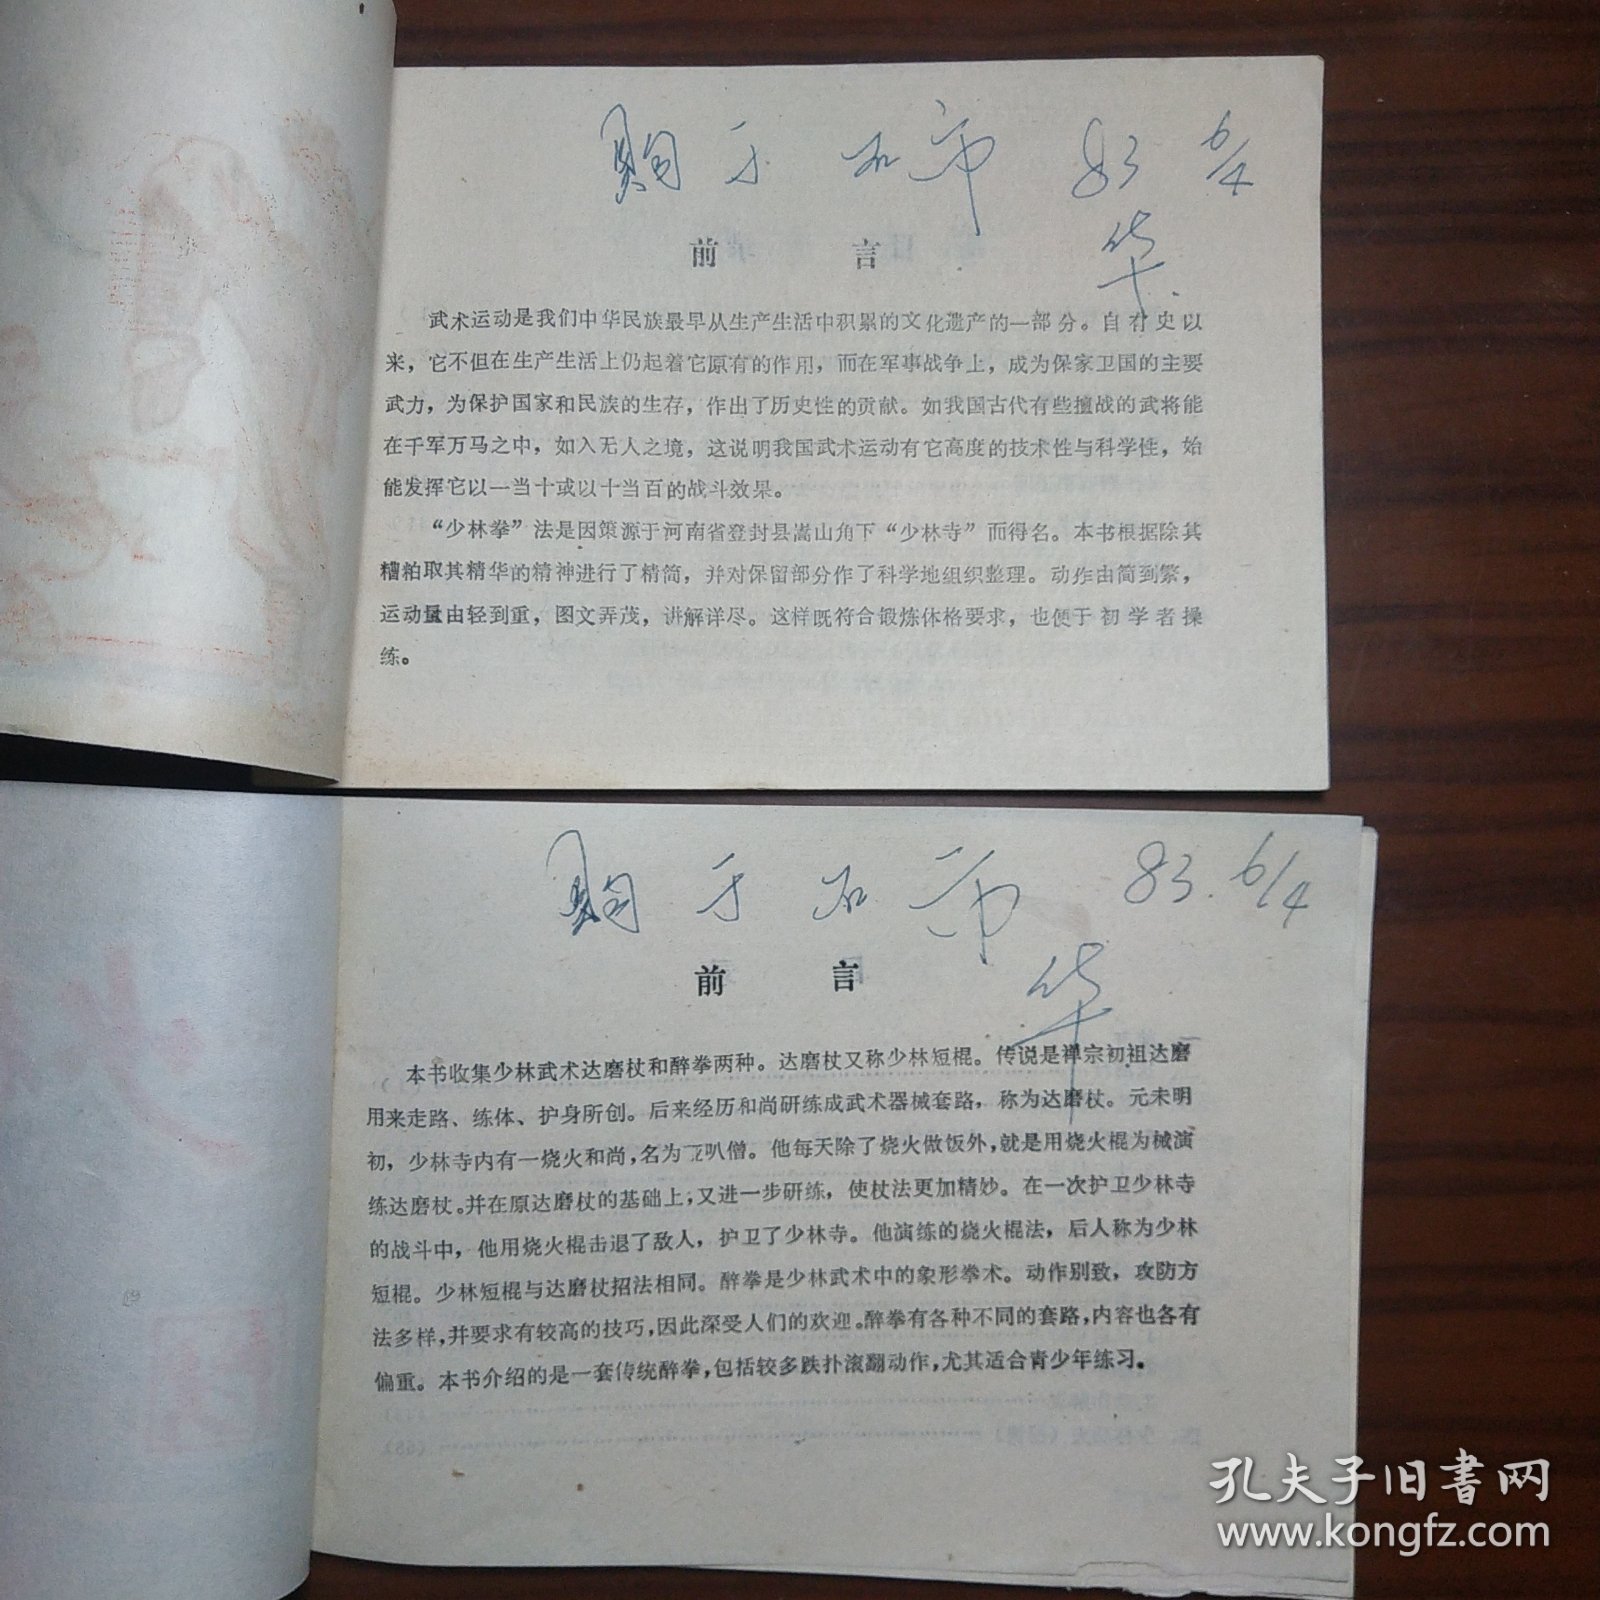 购于石市 83 6/4
华
前 言
武术运动是我们中华民族最早从生产生活中积累的文化遗产的一部分。自有史以
来，它不但在生产生活上仍起着它原有的作用，而在军事战争上，成为保家卫国的主要
武力，为保护国家和民族的生存，作出了历史性的贡献。如我国古代有些擅战的武将能
在千军万马之中，如入无人之境，这说明我国武术运动有它高度的技术性与科学性，始
能发挥它以一当十或以十当百的战斗效果。
“少林拳”法是因策源于河南省登封县嵩山角下“少林寺”而得名。本书根据除其
糟粕取其精华的精神进行了精简，并对保留部分作了科学地组织整理。动作由简到繁，
运动量由轻到重，图文弄茂，讲解详尽。这样既符合锻炼体格要求，也便于初学者操
练。
购于石市 83.6/4
华
前 言
本书收集少林武术达磨杖和醉拳两种。达磨杖又称少林短棍。传说是禅宗初祖达磨
用来走路、练体、护身所创。后来经历和尚研练成武术器械套路，称为达磨杖。元未明
初，少林寺内有一烧火和尚，名为叭僧。他每天除了烧火做饭外，就是用烧火棍为械演
练达磨杖。并在原达磨杖的基础上，又进一步研练，使杖法更加精妙。在一次护卫少林寺
的战斗中，他用烧火棍击退了敌人，护卫了少林寺。他演练的烧火棍法，后人称为少林
短棍。少林短棍与达磨杖招法相同。醉拳是少林武术中的象形拳术。动作别致，攻防方
法多样，并要求有较高的技巧，因此深受人们的欢迎。醉拳有各种不同的套路，内容也各有
偏重。本书介绍的是一套传统醉拳，包括较多跌扑滚翻动作，尤其适合青少年练习。
孔夫子旧书网
www.kongfz.com